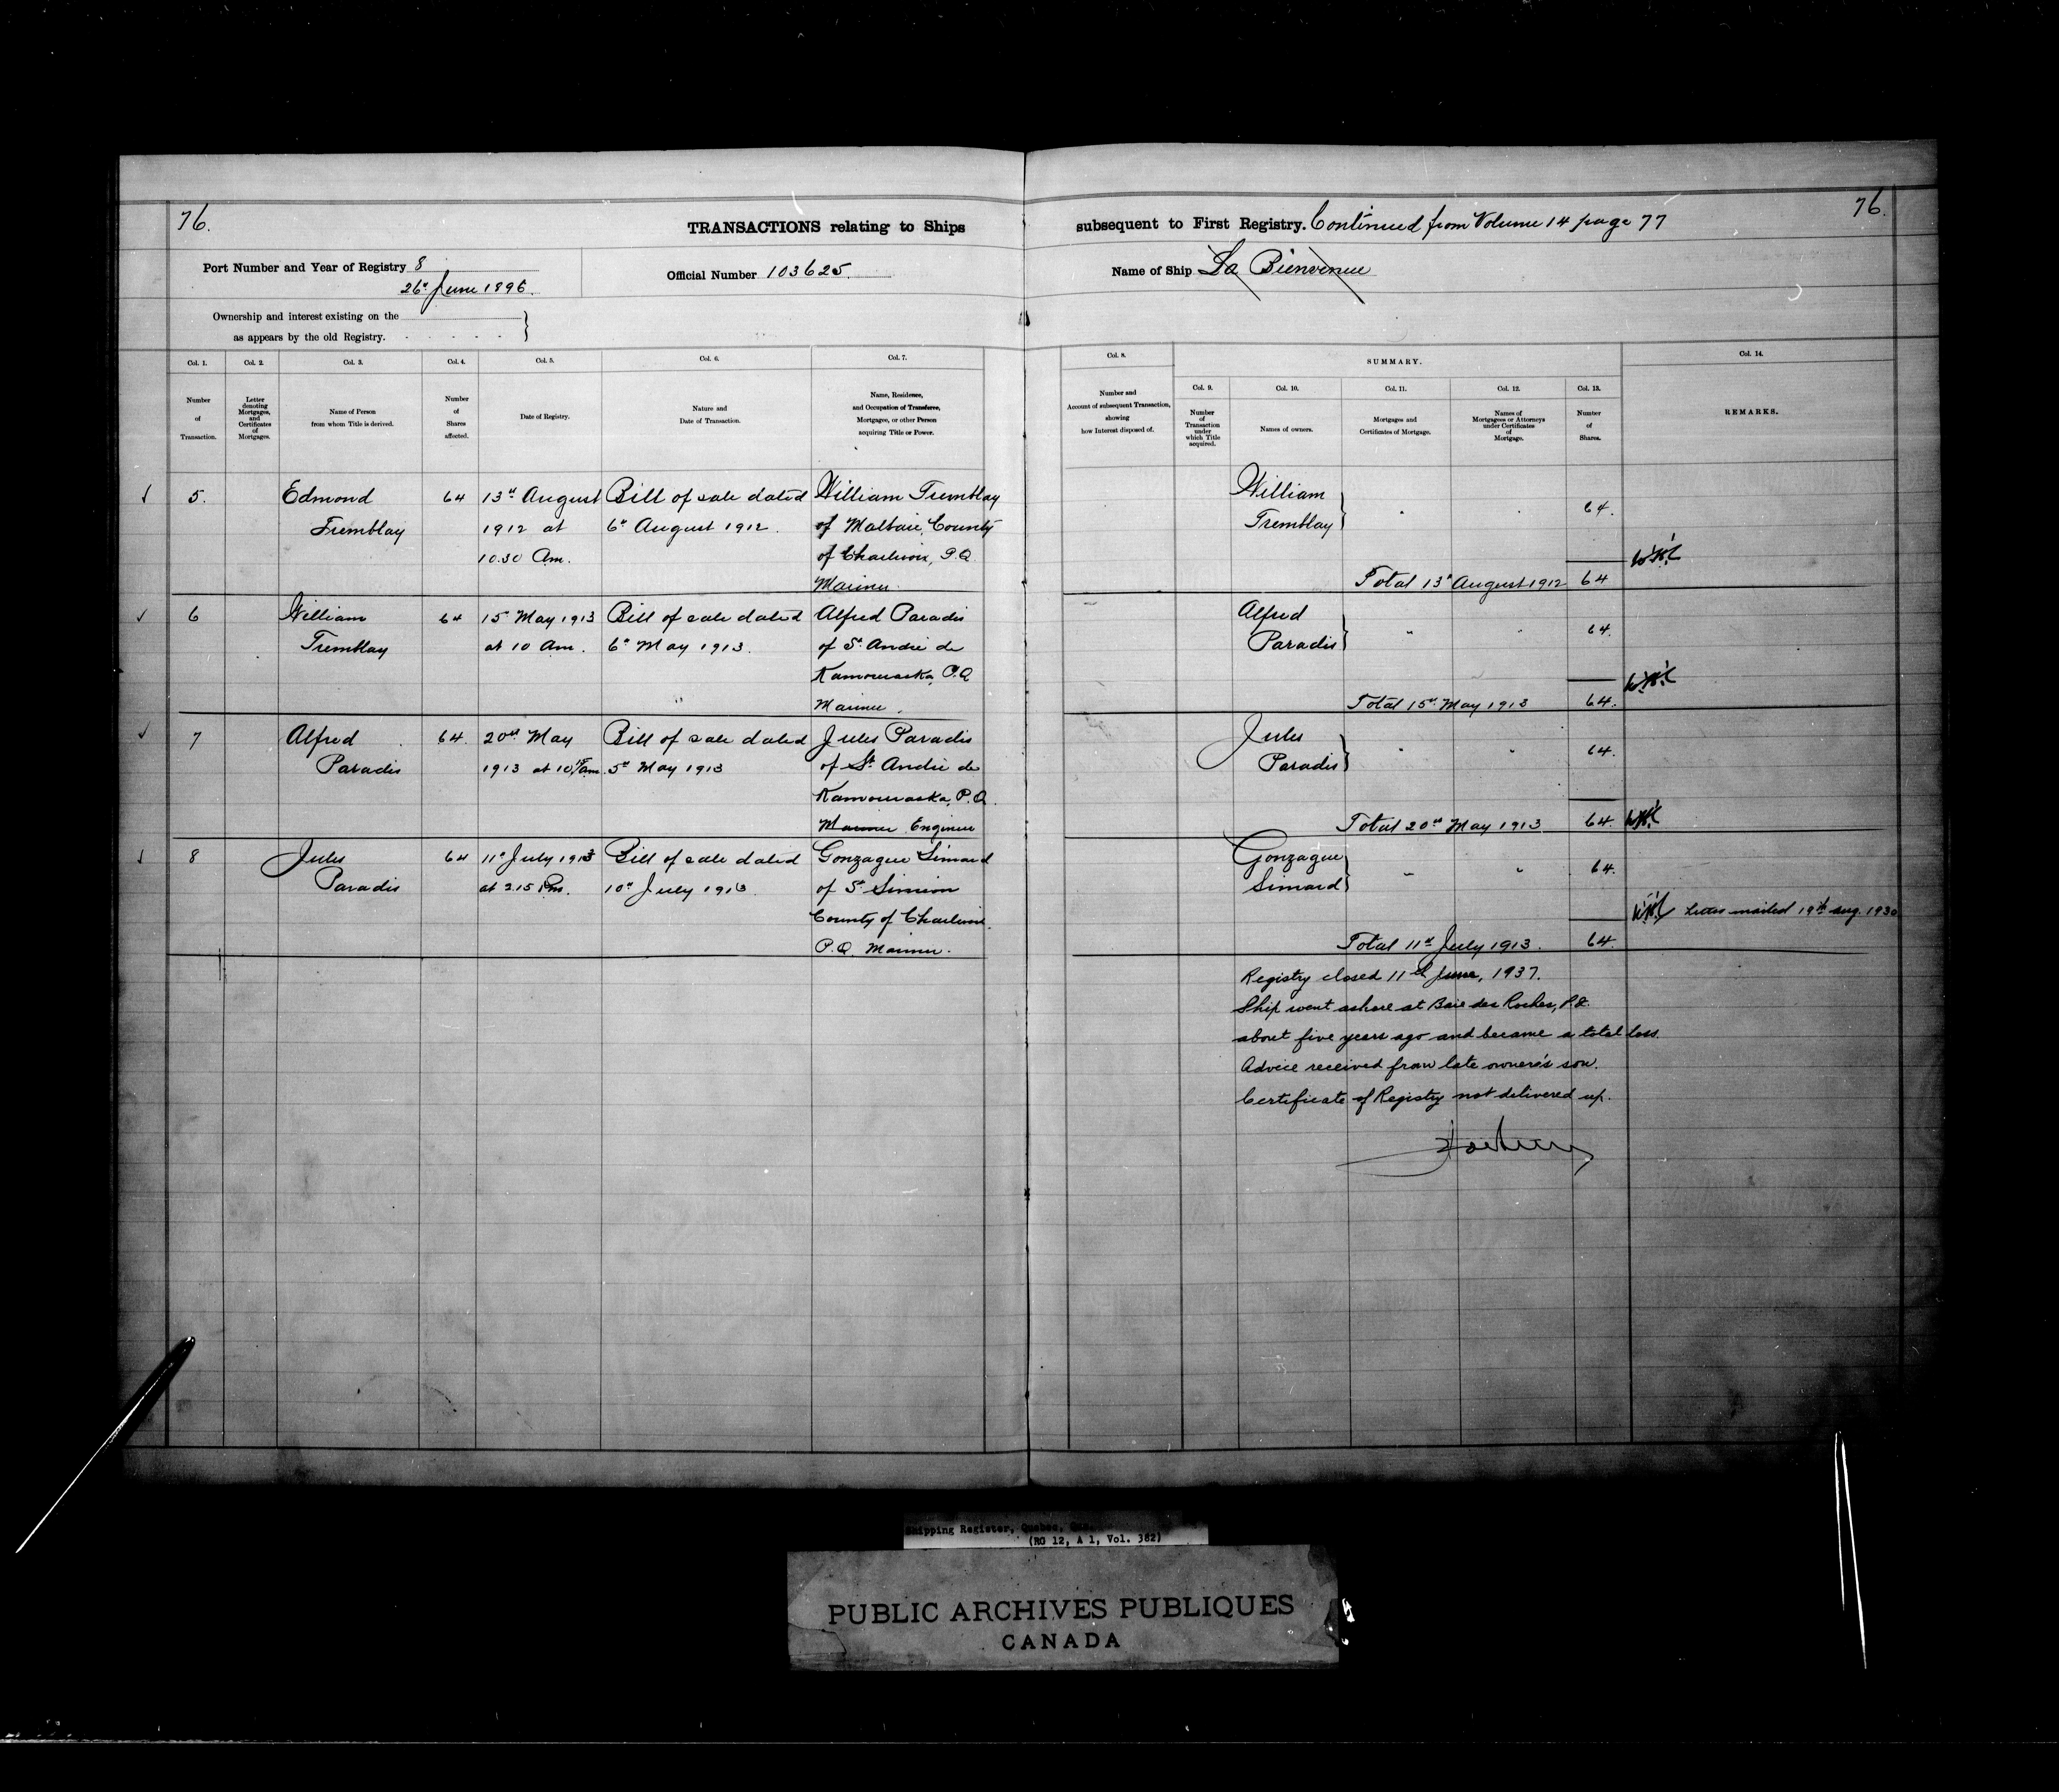 76.
TRANSACTIONS relating to Ships
subsequent to First Registry. Continued from Volume 14 page 77
76.
Port Number and Year of Registry 8
26th June 1896.
Official Number 103625
Name of Ship La Bienvenue
Ownership and interest existing on the
as appears by the old Registry.
Col. 1.
Number
of
Transaction.
Col. 2.
Letter
denoting
Mortgages,
and
Certificates
of
Mortgages.
Col. 3.
Name of Person
from whom Title is derived.
Col. 4.
Number
of
Shares
affected.
Col. 5.
Date of Registry.
Col. 6.
Nature and
Date of Transaction.
Col. 7.
Name, Residence,
and Occupation of Transferee,
Mortgagee, or other Person
acquiring Title or Power.
Col. 8.
Number and
Account of subsequent Transaction,
showing
how Interest disposed of.
SUMMARY.
Col. 9.
Number
of
Transaction
under
which Title
acquired.
Col. 10.
Names of owners.
Col. 11.
Mortgages and
Certificates of Mortgage.
Col. 12.
Names of
Mortgagees or Attorneys
under Certificates
of
Mortgage.
Col. 13.
Number
of
Shares.
Col. 14.
REMARKS.
5.
Edmond
Tremblay
64
13th August
1912 at
10.30 Am.
Bill of sale dated
6th August 1912.
William Tremblay
of Malbaie, County
of Charlevoix, P.Q.
Mariner.
William
Tremblay
64.
Total 13th August 1912 64
6
William
Tremblay
64
15th May 1913
at 10 Am.
Bill of sale dated
6th May 1913.
Alfred Paradis
of St. André de
Kamouraska, P.Q
Mariner.
Alfred
Paradis
64.
Total 15th May 1913 64.
7
Alfred
Paradis
64.
20th May
1913 at 10 15 am.
Bill of sale dated
5th May 1913
Jules Paradis
of St. André de
Kamouraska, P.Q.
Mariner Engineer
Jules
Paradis
64.
Total 20th May 1913 64.
8
Jules
Paradis
64
11th July 1913
at 2.15 Pm.
Bill of sale dated
10th July 1913.
Gonzague Simard
of St. Simeon
County of Charlevoix.
P.Q. Mariner.
Gonzague
Simard
64.
Letter mailed 19th aug. 1930
Total 11th July 1913. 64.
Registry closed 11th June, 1937.
Ship went ashore at Baie des Rochers, P.Q.
about five years ago and became a total loss.
Advice received from late owner's son.
Certificate of Registry not delivered up.
Shipping Register, Quebec, Que.
(RG 12, A 1, Vol. 382)
PUBLIC ARCHIVES PUBLIQUES
CANADA